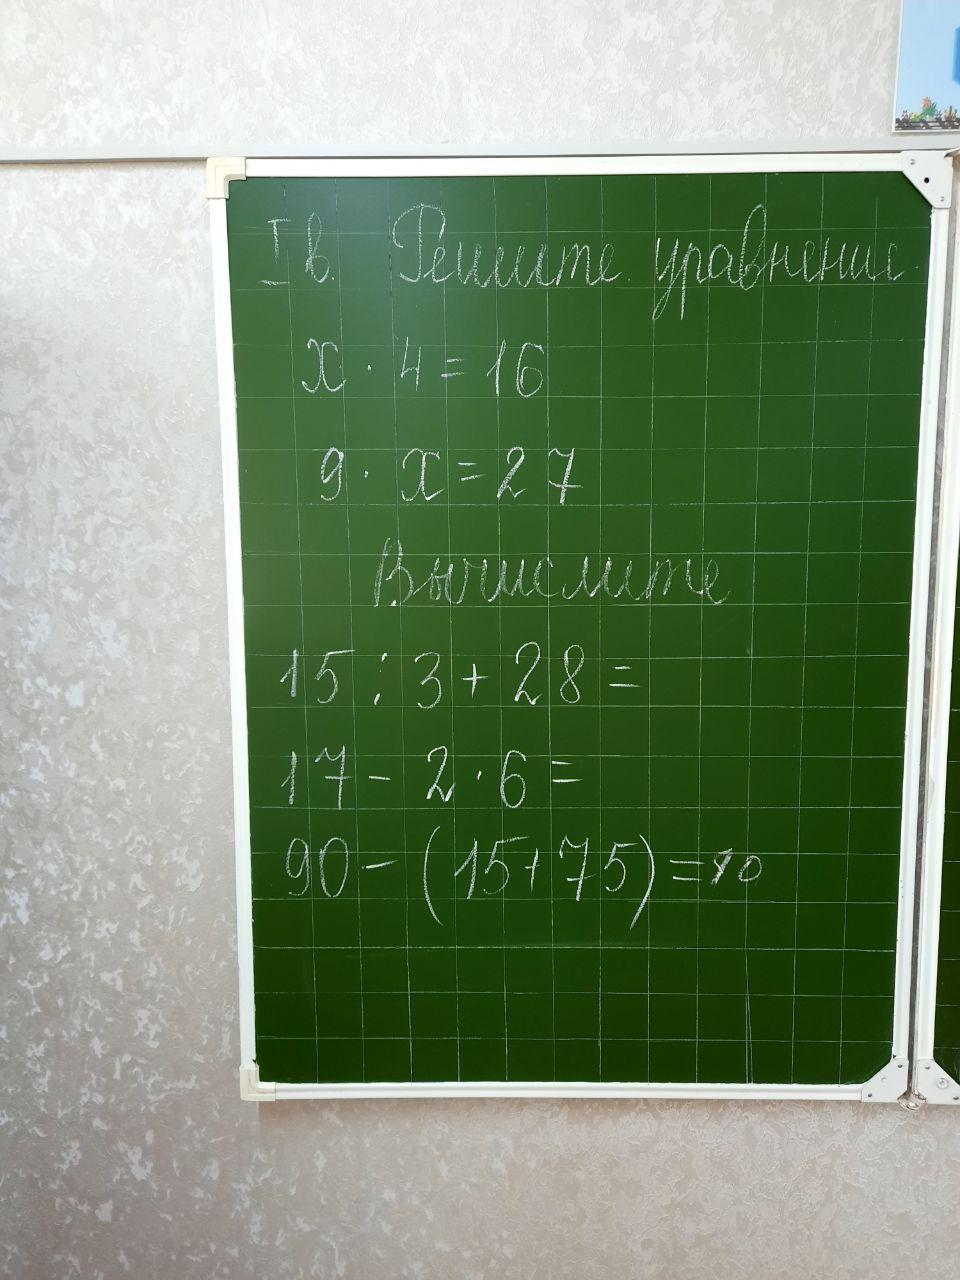 I в. Решите уравнение.
x · 4 = 16
9 · x = 27
Вычислите
15 : 3 + 28 =
17 - 2 · 6 =
90 - (15 + 75) = 10